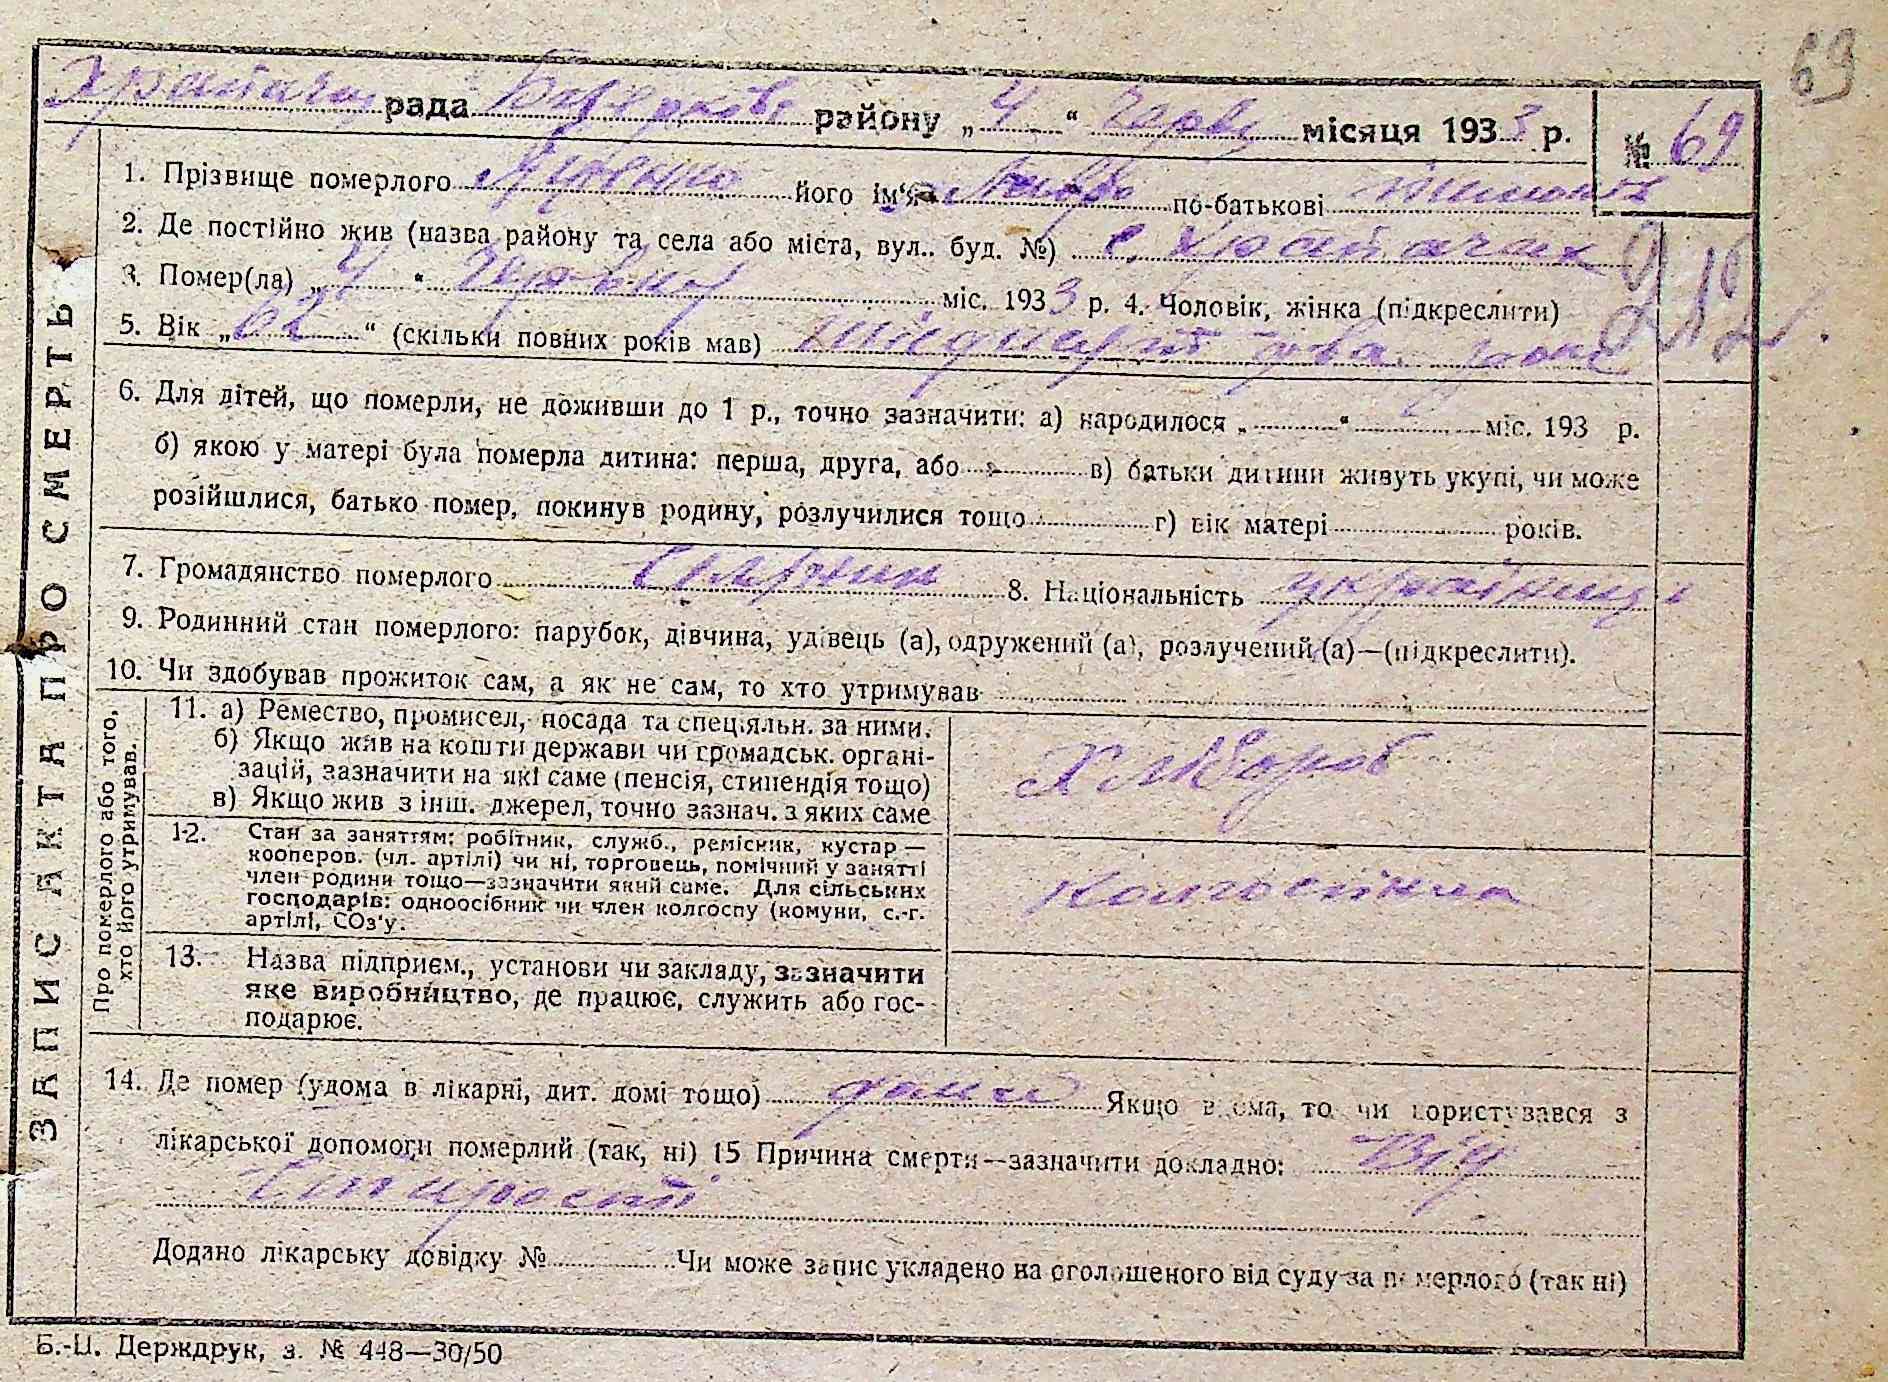 69
Храпачан рада Б.Церковс району „4“ черв місяця 1933 р. № 69
ЗАПИС АКТА ПРО СМЕРТЬ
1. Прізвище померлого його ім'я по-батькові
2. Де постійно жив (назва району та села або міста, вул.. буд. №) с. Храпачах
3. Помер(ла) „4“ червня міс. 1933 р. 4. Чоловік, жінка (підкреслити)
5. Вік „62“ (скільки повних років мав) шісдисят два роки
6. Для дітей, що померли, не доживши до 1 р., точно зазначити: а) народилося „ “ міс. 193 р.
б) якою у матері була померла дитина: перша, друга, або в) батьки дитини живуть укупі, чи може
розійшлися, батько помер, покинув родину, розлучилися тощо г) вік матері років.
7. Громадянство померлого 8. Національність українець
9. Родинний стан померлого: парубок, дівчина, удівець (а), одружений (а), розлучений (а)—(підкреслити).
10. Чи здобував прожиток сам, а як не сам, то хто утримував
Про померлого або того,
хто його утримував.
11. а) Ремество, промисел, посада та спеціяльн. за ними.
б) Якщо жив на кошти держави чи громадськ. органі-
зацій, зазначити на які саме (пенсія, стипендія тощо)
в) Якщо жив з інш. джерел, точно зазнач. з яких саме
Хлібороб
12. Стан за заняттям: робітник, служб., ремісник, кустар—
кооперов. (чл. артілі) чи ні, торговець, помічний у занятті
член родини тощо—зазначити який саме. Для сільських
господарів: одноосібник чи член колгоспу (комуни, с.-г.
артілі, СОз'у.
13. Назва підприєм., установи чи закладу, зазначити
яке виробництво, де працює, служить або гос-
подарює.
14. Де помер (удома в лікарні, дит. домі тощо) дома Якщо вдома, то чи користувався з
лікарської допомоги померлий (так, ні) 15 Причина смерти—зазначити докладно: Від
старості
Додано лікарську довідку № Чи може запис укладено на оголошеного від суду за померлого (так ні)
Б.-Ц. Держдрук, з. № 448—30/50